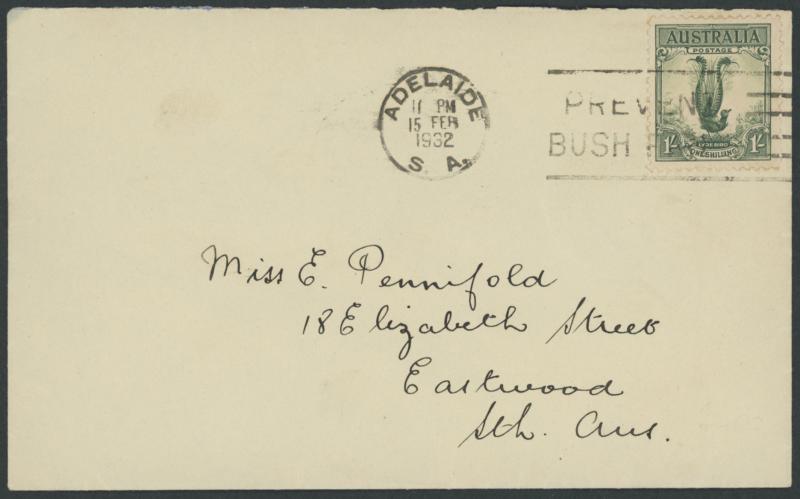 AUSTRALIA
POSTAGE
LYREBIRD
1/- ONE SHILLING 1/-
ADELAIDE
11 PM
15 FEB
1932
S. A.
PREVENT
BUSH
Miss E. Pennifold
18 Elizabeth Street
Eastwood
Sth. Aus.